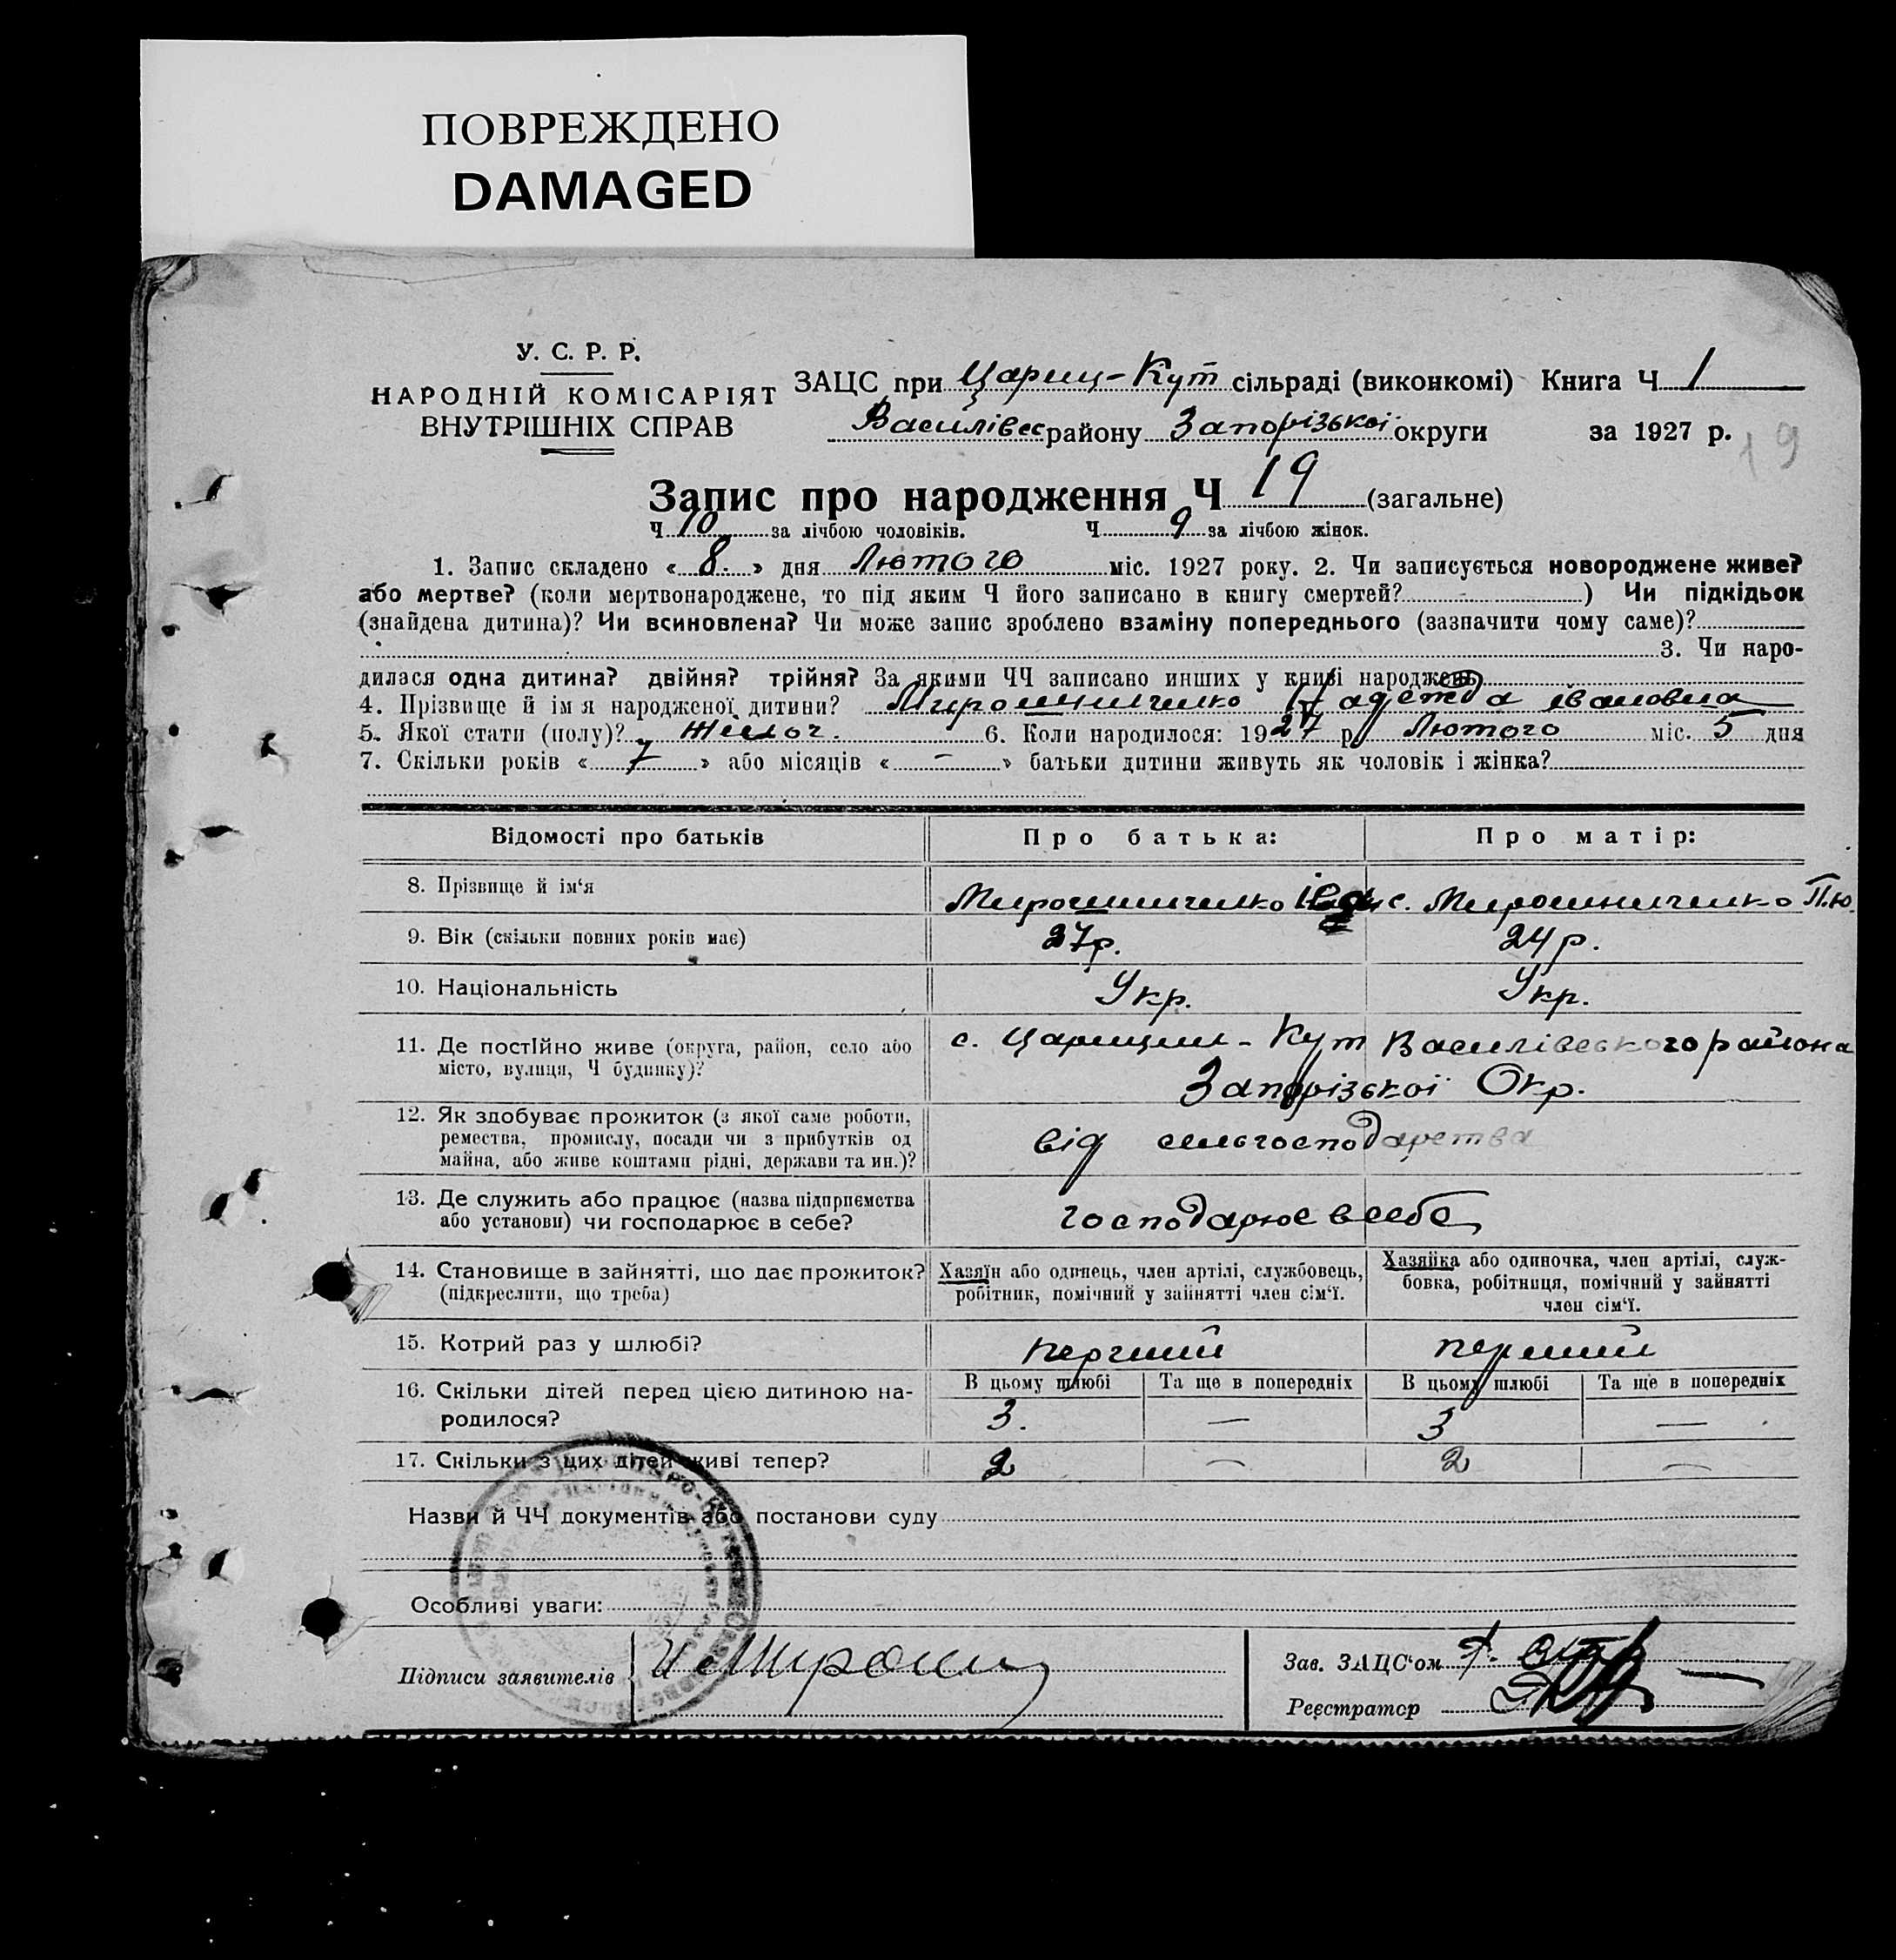 ПОВРЕЖДЕНО
DAMAGED
У. С. Р. Р.
НАРОДНІЙ КОМІСАРІЯТ
ВНУТРІШНІХ СПРАВ
ЗАЦС при Цариц-Кут сільраді (виконкомі) Книга Ч 1
Василівсс району Запорізької округи за 1927 р.
19
Запис про народження Ч 19 (загальне)
Ч 10 за лічбою чоловіків. Ч 9 за лічбою жінок.
1. Запис складено « 8. » дня Лютого міс. 1927 року. 2. Чи записується новороджене живе?
або мертве? (коли мертвонароджене, то під яким Ч його записано в книгу смертей? - ) Чи підкідьок
(знайдена дитина)? Чи всиновлена? Чи може запис зроблено взаміну попереднього (зазначити чому саме)?
3. Чи наро-
дилася одна дитина? двійня? трійня? За якими ЧЧ записано инших у книзі народжень
4. Прізвище й ім'я народженої дитини? Мирошниченко Надежда івановна
5. Якої стати (полу)? Жіноч. 6. Коли народилося: 1927 р Лютого міс. 5 дня
7. Скільки років « 7 » або місяців « - » батьки дитини живуть як чоловік і жінка?
Відомості про батьків Про батька: Про матір:
8. Прізвище й ім‘я Мирошниченко Мирошниченко П.Ю.
9. Вік (скільки повних років має) 27р. 24р.
10. Національність Укр. Укр.
11. Де постійно живе (округа, район, село або с. Царицин-Кут Василівського района
місто, вулиця, Ч будинку)? Запорізької Окр.
12. Як здобуває прожиток (з якої саме роботи,
ремества, промислу, посади чи з прибутків од від сельгосподарства
майна, або живе коштами рідні, держави та ин.)?
13. Де служить або працює (назва підприємства
або установи) чи господарює в себе? господарює в себе
14. Становище в зайнятті, що дає прожиток? Хазяїн або одинець, член артілі, службовець, Хазяйка або одиночка, член артілі, служ-
(підкреслити, що треба) робітник, помічний у зайнятті член сім‘ї. бовка, робітниця, помічний у зайнятті
член сім‘ї.
15. Котрий раз у шлюбі? перший перший
16. Скільки дітей перед цією дитиною на- В цьому шлюбі Та ще в попередніх В цьому шлюбі Та ще в попередніх
родилося? 3. — 3 —
17. Скільки з цих дітей живі тепер? 2 — 2 —
Назви й ЧЧ документів або постанови суду
Особливі уваги:
Підписи заявителів И Мирошн
Зав. ЗАЦС‘ом
Реєстратор